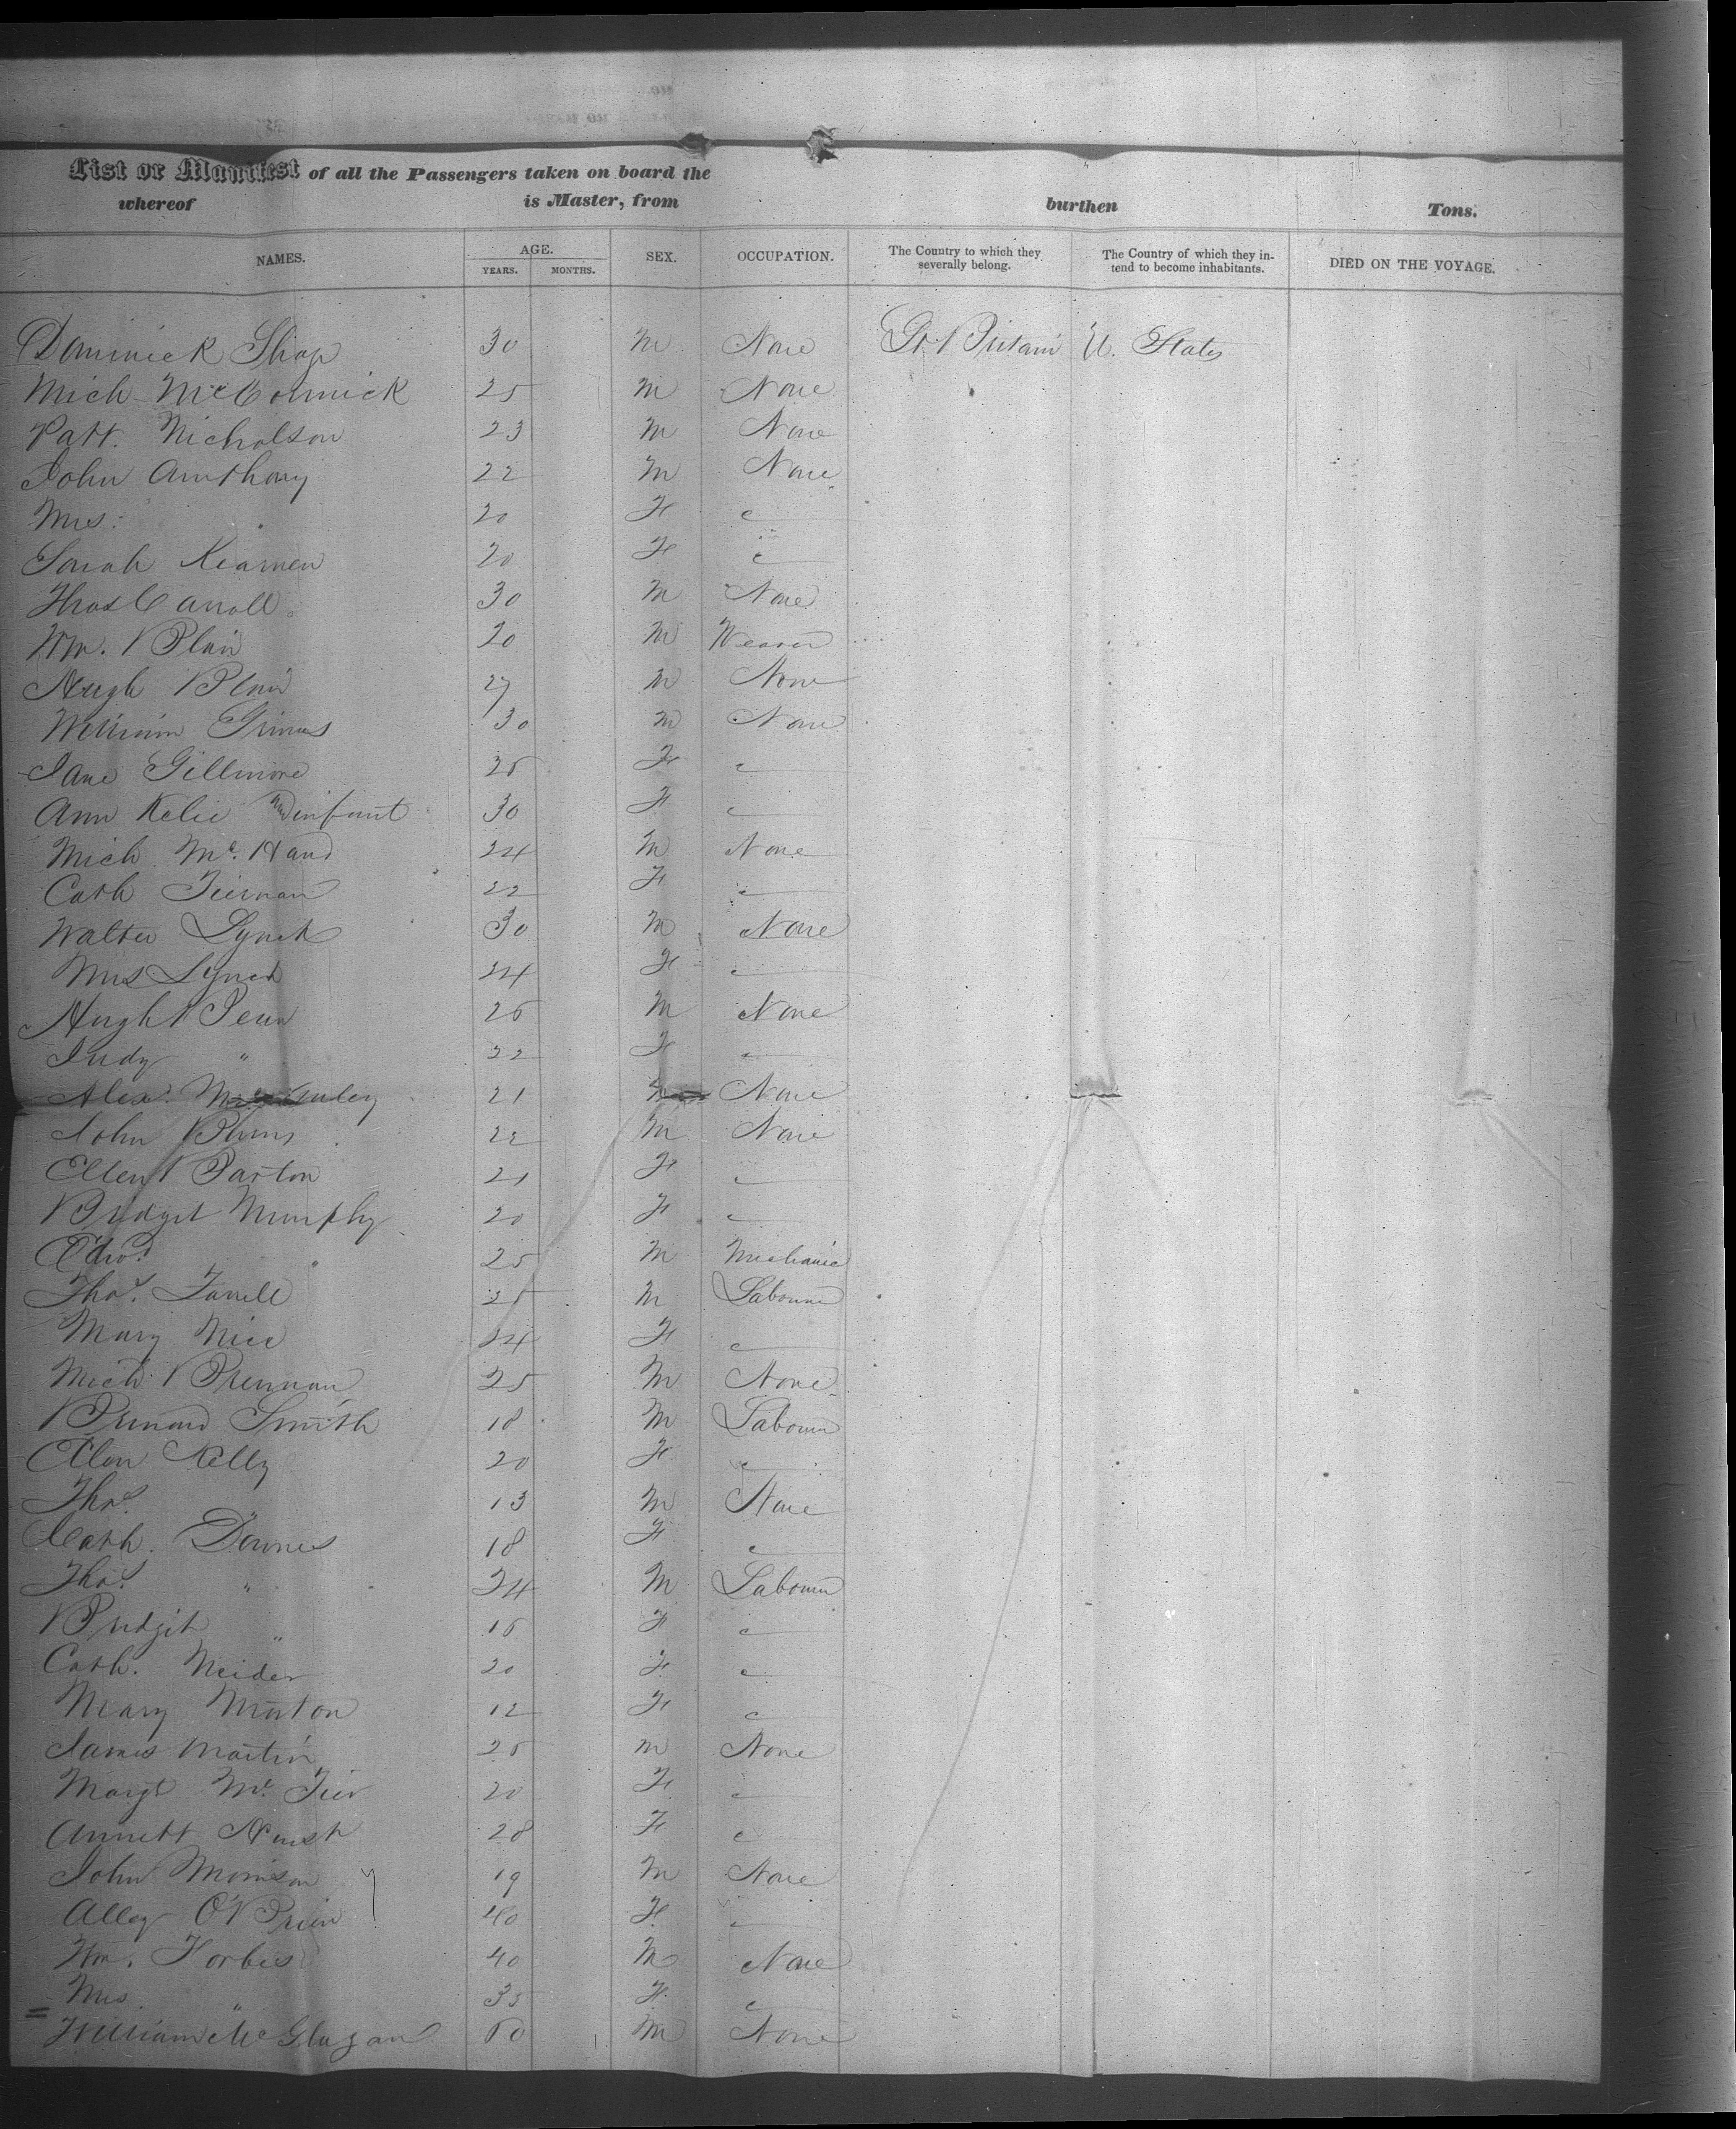 List or Manifest of all the Passengers taken on board the
whereof is Master, from burthen Tons.
NAMES. AGE. YEARS. MONTHS. SEX. OCCUPATION. The Country to which they severally belong. The Country of which they intend to become inhabitants. DIED ON THE VOYAGE.
Dominick 30 M None Gt Britain U. States
Mich McCormick 25 M None
Patt. Nicholson 23 M None
John Annthony 22 M None
Mrs: 20 F
Sarah 20 F
Thos Carroll 30 M None
Wm. Blair 20 M Weaver
Hugh Blair 27 M None
William Grimes 30 M None
Jane Gillmore 25 F
Ann Kelie and infant 30 F
Mich Mc. Hand 24 M None
Cath Tiernan 22 F
Walter Lynch 30 M None
Mrs Lynch 24 F
Hugh 26 M None
Judy " 22 F
Alex. 21 M None
John 22 M None
Ellen Barton 21 F
Bridget Murphy 20 F
Edwd. " 25 M Mechanic
Thos. Farrell 25 M Labourer
Mary Nice 24 F
Mich Brennan 25 M None
Bernard Smith 18 M Labourer
Ellen Kelly 20 F
Thos. " 13 M None
Cath. Downes 18 F
Thos. " 24 M Labourer
Bridgit " 16 F
Cath. Neider 20 F
Mary 12 F
James Martin 25 M None
Margt Mc. 20 F
Annett 28 F
John Morrison 19 M None
Alley O'Brien 40 F
Wm. Forbes 40 M None
Mrs. " 35 F
William Mc Glugan 60 M None